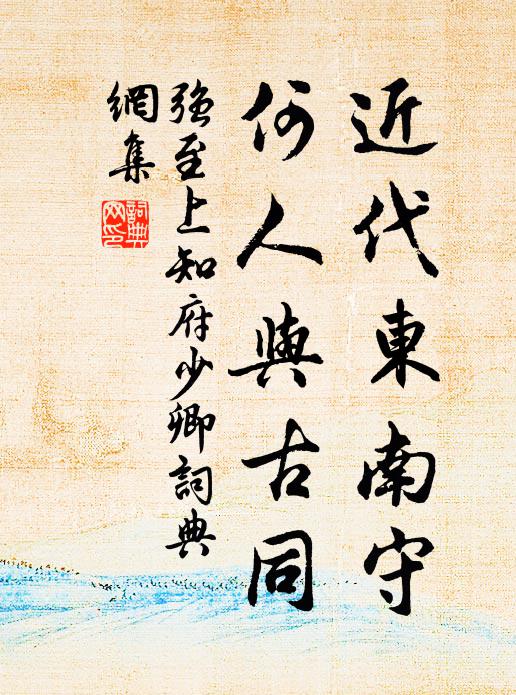 近代東南守
何人與古同
強至上知府少卿詞典
網集
詞典
网印